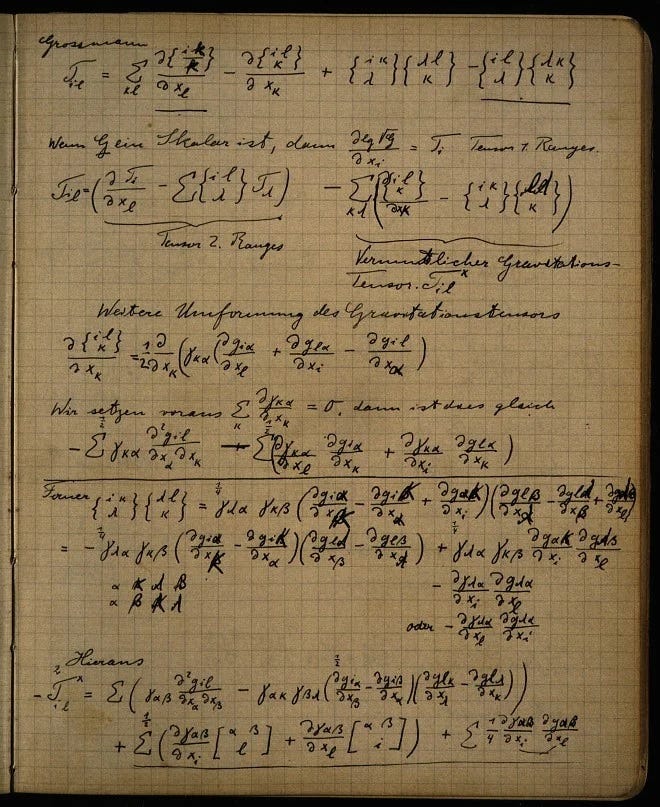 Grossmann
T_il = Σ_κl ∂{i κ / κ}/∂x_l − ∂{i l / κ}/∂x_κ + {i κ / λ}{λ l / κ} − {i l / λ}{λ κ / κ}
Wenn G ein Skalar ist, dann ∂lg√G/∂x_i = T_i Tensor 1. Ranges.
T_il = (∂T_i/∂x_l − Σ{i l / λ} T_λ) − Σ_κλ (∂{i l / κ}/∂x_κ − {i κ / λ}{λ l / κ})
Tensor 2. Ranges
Vermutlicher Gravitations-
Tensor. T_il^x
Weitere Umformung des Gravitationstensors
∂{i l / κ}/∂x_κ = 1/2 ∂/∂x_κ (γ_κα (∂g_iα/∂x_l + ∂g_lα/∂x_i − ∂g_il/∂x_α)
Wir setzen voraus Σ_κ ∂γ_κα/∂x_κ = 0, dann ist dies gleich
− 1/2 Σ γ_κα ∂²g_il/∂x_α∂x_κ − 1/2 Σ(∂γ_κα/∂x_l ∂g_iα/∂x_κ + ∂γ_κα/∂x_i ∂g_lα/∂x_κ)
Ferner {i κ / λ}{λ l / κ} = 1/4 γ_λα γ_κβ (∂g_iα/∂x_κ − ∂g_iκ/∂x_α + ∂g_ακ/∂x_i)(∂g_lβ/∂x_λ − ∂g_lλ/∂x_β + ∂g_λβ/∂x_l)
= − 1/4 γ_λα γ_κβ (∂g_iα/∂x_κ − ∂g_iκ/∂x_α)(∂g_lλ/∂x_β − ∂g_lβ/∂x_λ) + 1/4 γ_λα γ_κβ ∂g_ακ/∂x_i ∂g_λβ/∂x_l
α κ λ β
α β κ λ
− ∂γ_λα/∂x_i ∂g_λα/∂x_l
oder − ∂γ_λα/∂x_l ∂g_λα/∂x_i
Hieraus
− 2 T_il^x = Σ (γ_αβ ∂²g_il/∂x_α∂x_β − 1/2 γ_ακ γ_βλ (∂g_iα/∂x_β − ∂g_iβ/∂x_α)(∂g_lκ/∂x_λ − ∂g_lλ/∂x_κ))
+ 1/2 Σ (∂γ_αβ/∂x_i [α β / l] + ∂γ_αβ/∂x_l [α β / i]) + Σ 1/4 ∂γ_αβ/∂x_i ∂g_αβ/∂x_l